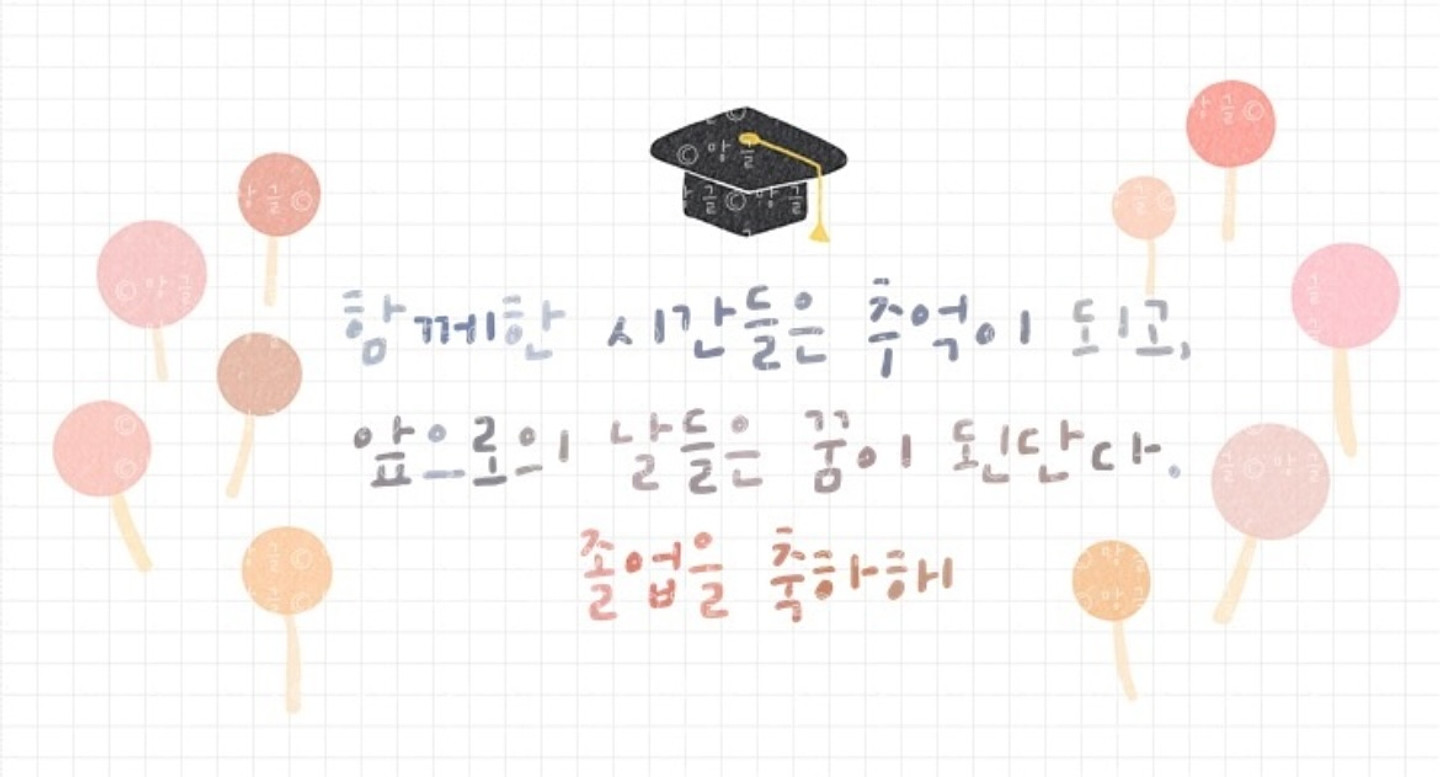 함께한 시간들은 추억이 되고,
앞으로의 날들은 꿈이 된단다.
졸업을 축하해